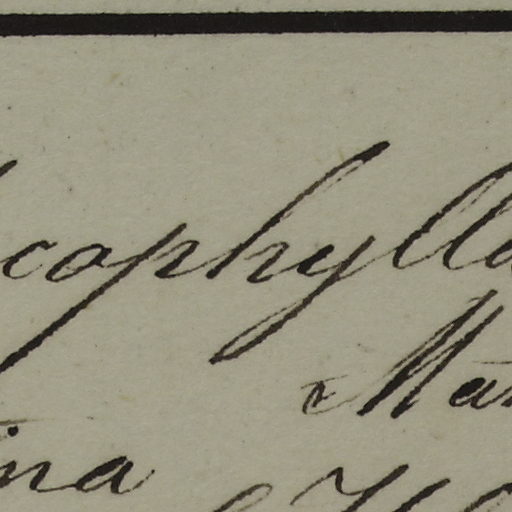 cophylla
Mar
ina